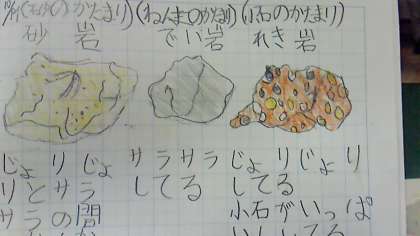 (石砂の かたまり) (ねんまつのかたまり) (小石のかたまり)
砂岩 でい岩 れき岩
じょりじょ サラサラ じょりじょり
りとサラ してる してる
サラの間 小石がいっぱ